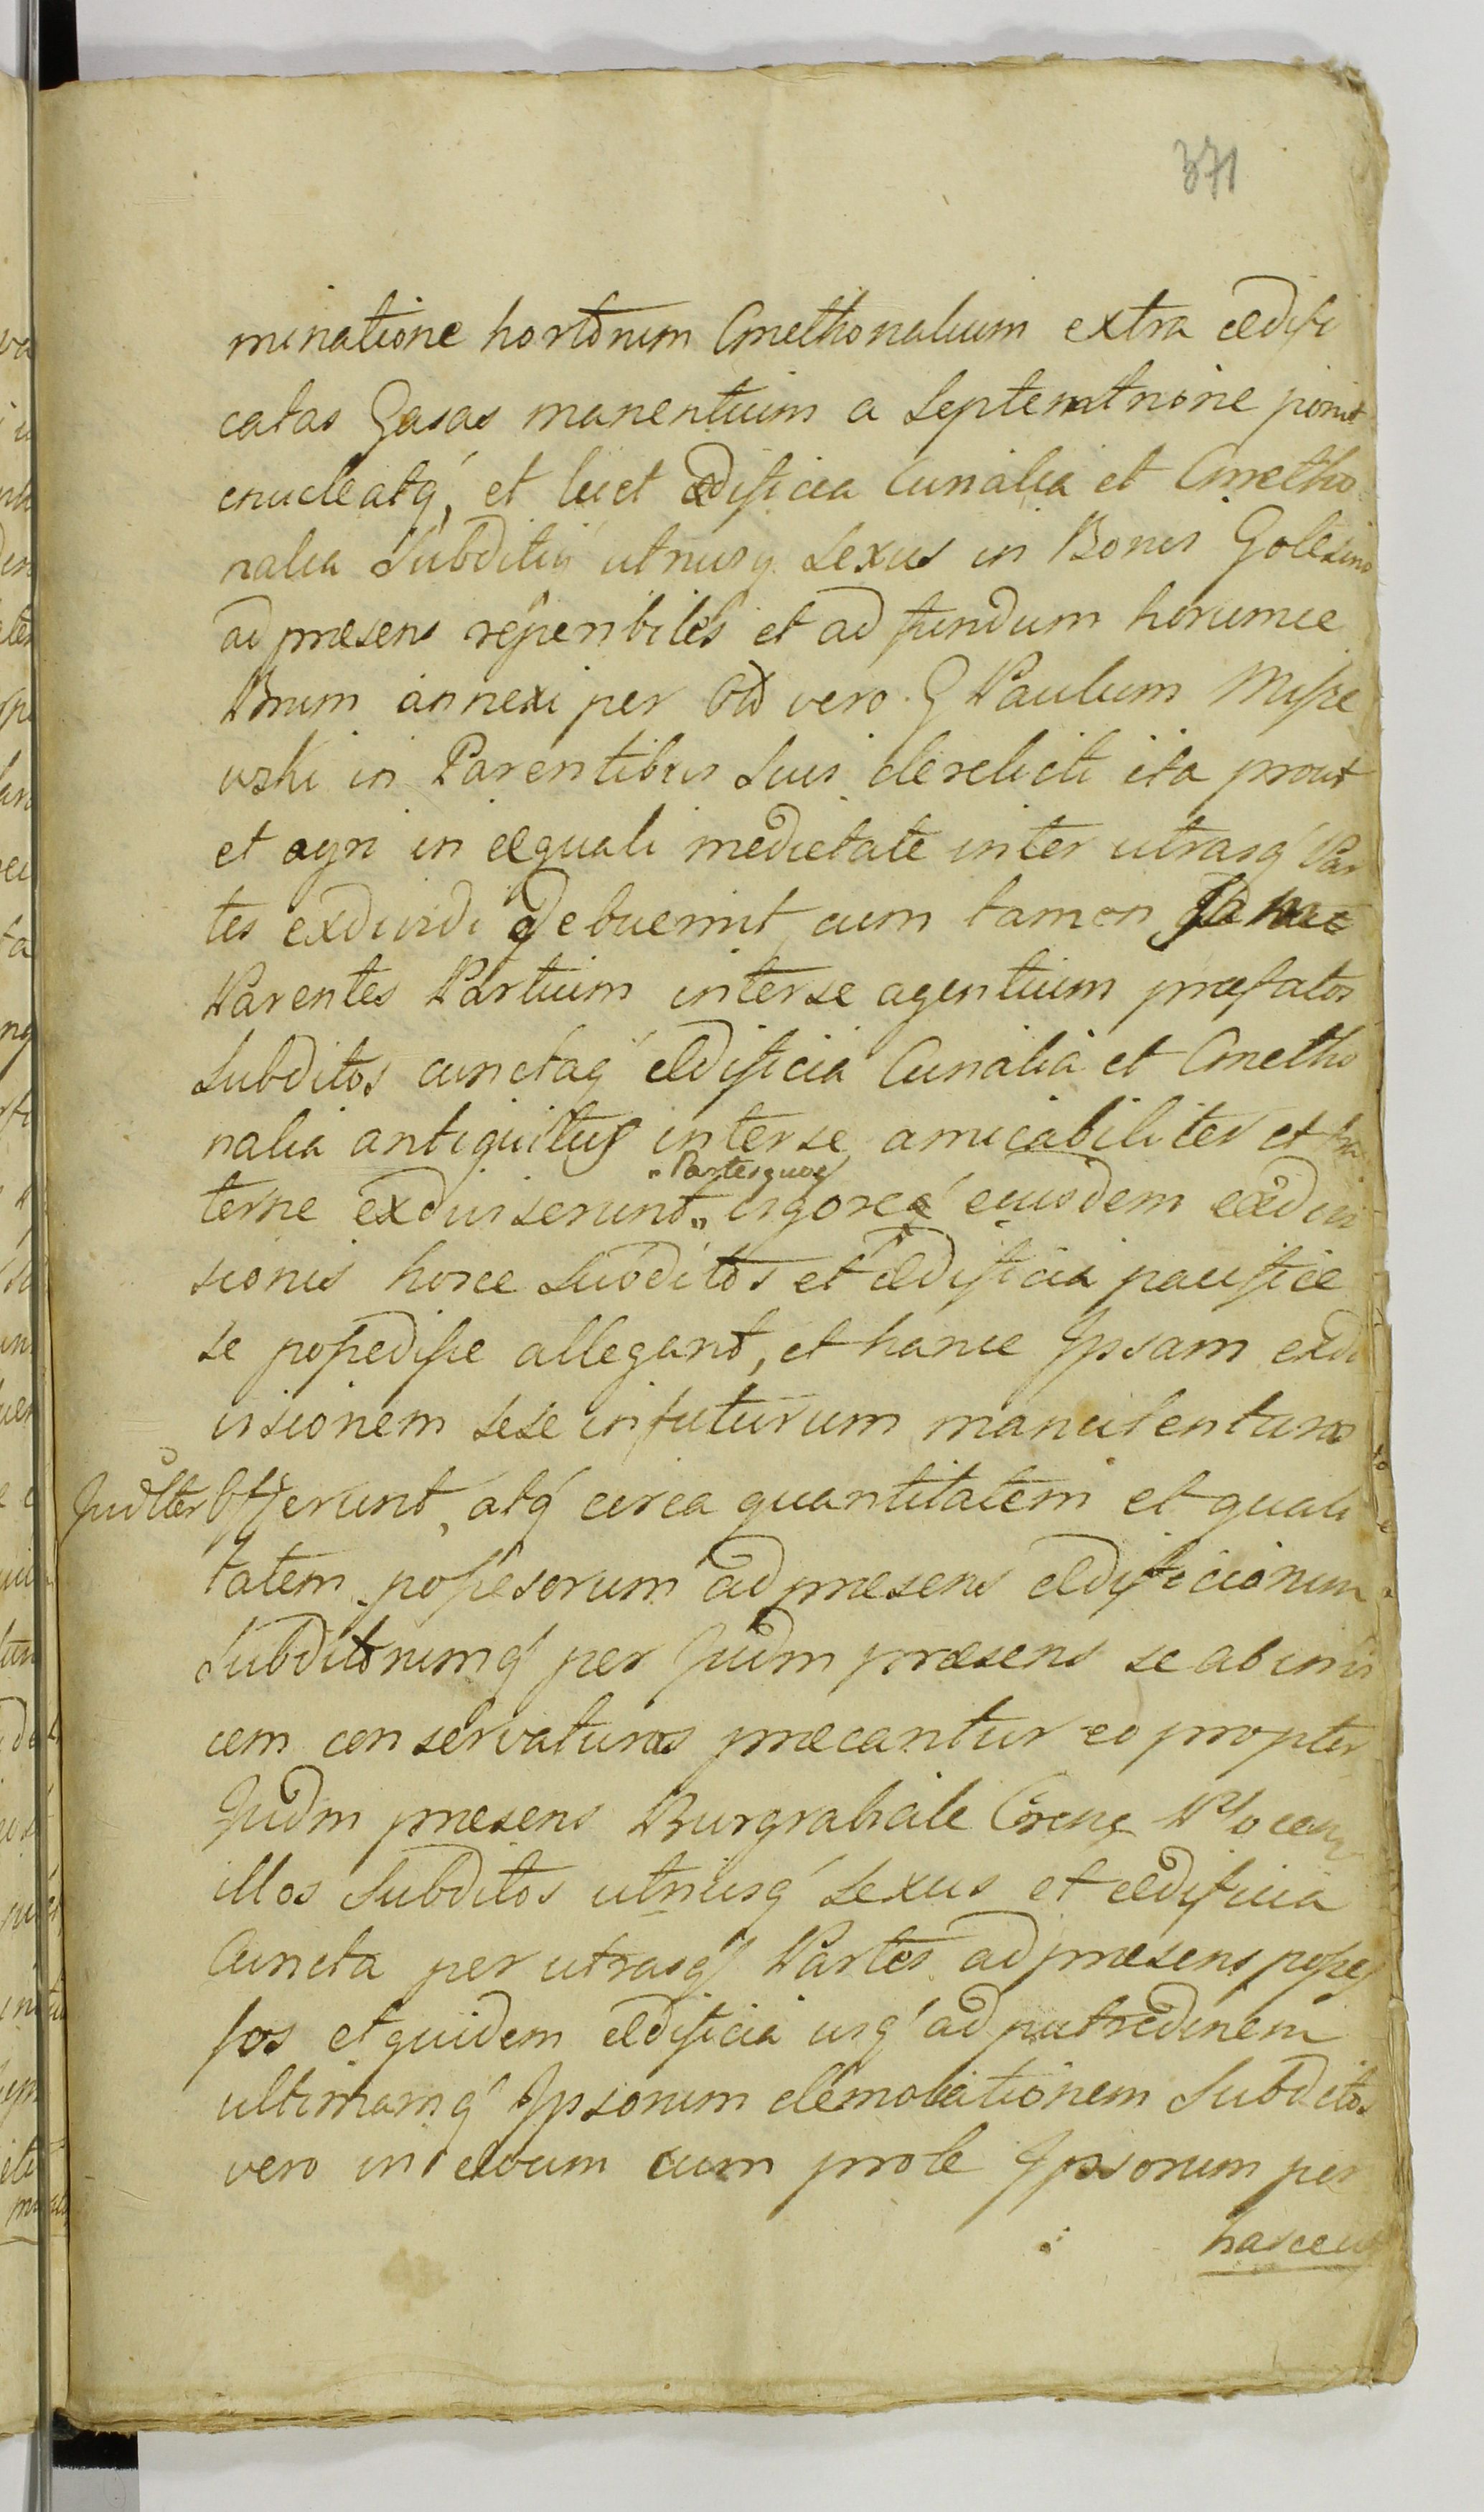 371
minatione hortorum Cmethonalium extra ædifi
catas Casas manentium a Septemtrione ponit
enucleatq, et licet ædificia Curialia et Cmetho
nalia Subditiq utriusq Sexus in Bonis Golesino
ad præsens reperibiles et ad fundum horumce
Bnrum annexi per Old vero G Paulum Misze
wski in Parentibus Suis derelicti ita prout
et agri in æquali medietate inter utrasq Par
tes exdividi debuerint, cum tamen
Parentes Partium interse agentium præfatos
Subditos cunctaq ædificia Curialia et Cmetho
nalia antiquitus interse amicabiliter et fra
terne exdiviserunt „ vigoreq eiusdem exdivi
„ Partesque
sionis hosce Subditos et ædificia pacifice
se possedisse allegant, et hance Ipsam exdi
visionem sese in futurum manutenturos
Judlter Offerunt, atq circa quantitatem et quali
tatem possesorum ad præsens ædificiorum
Subditorumq per Judm præsens se ab invi
cem conservaturos præcantur eo propter
Judm præsens Burgrabiale Crense Plocen
illos Subditos utriusq Sexus et ædificia
Cuncta per utrasq Partes ad præsens posses
sos et quidem ædificia usq ad putredinem
ultimamq Ipsorum demolitionem Subditos
vero in ævum cum prole Ipsorum per
hasce